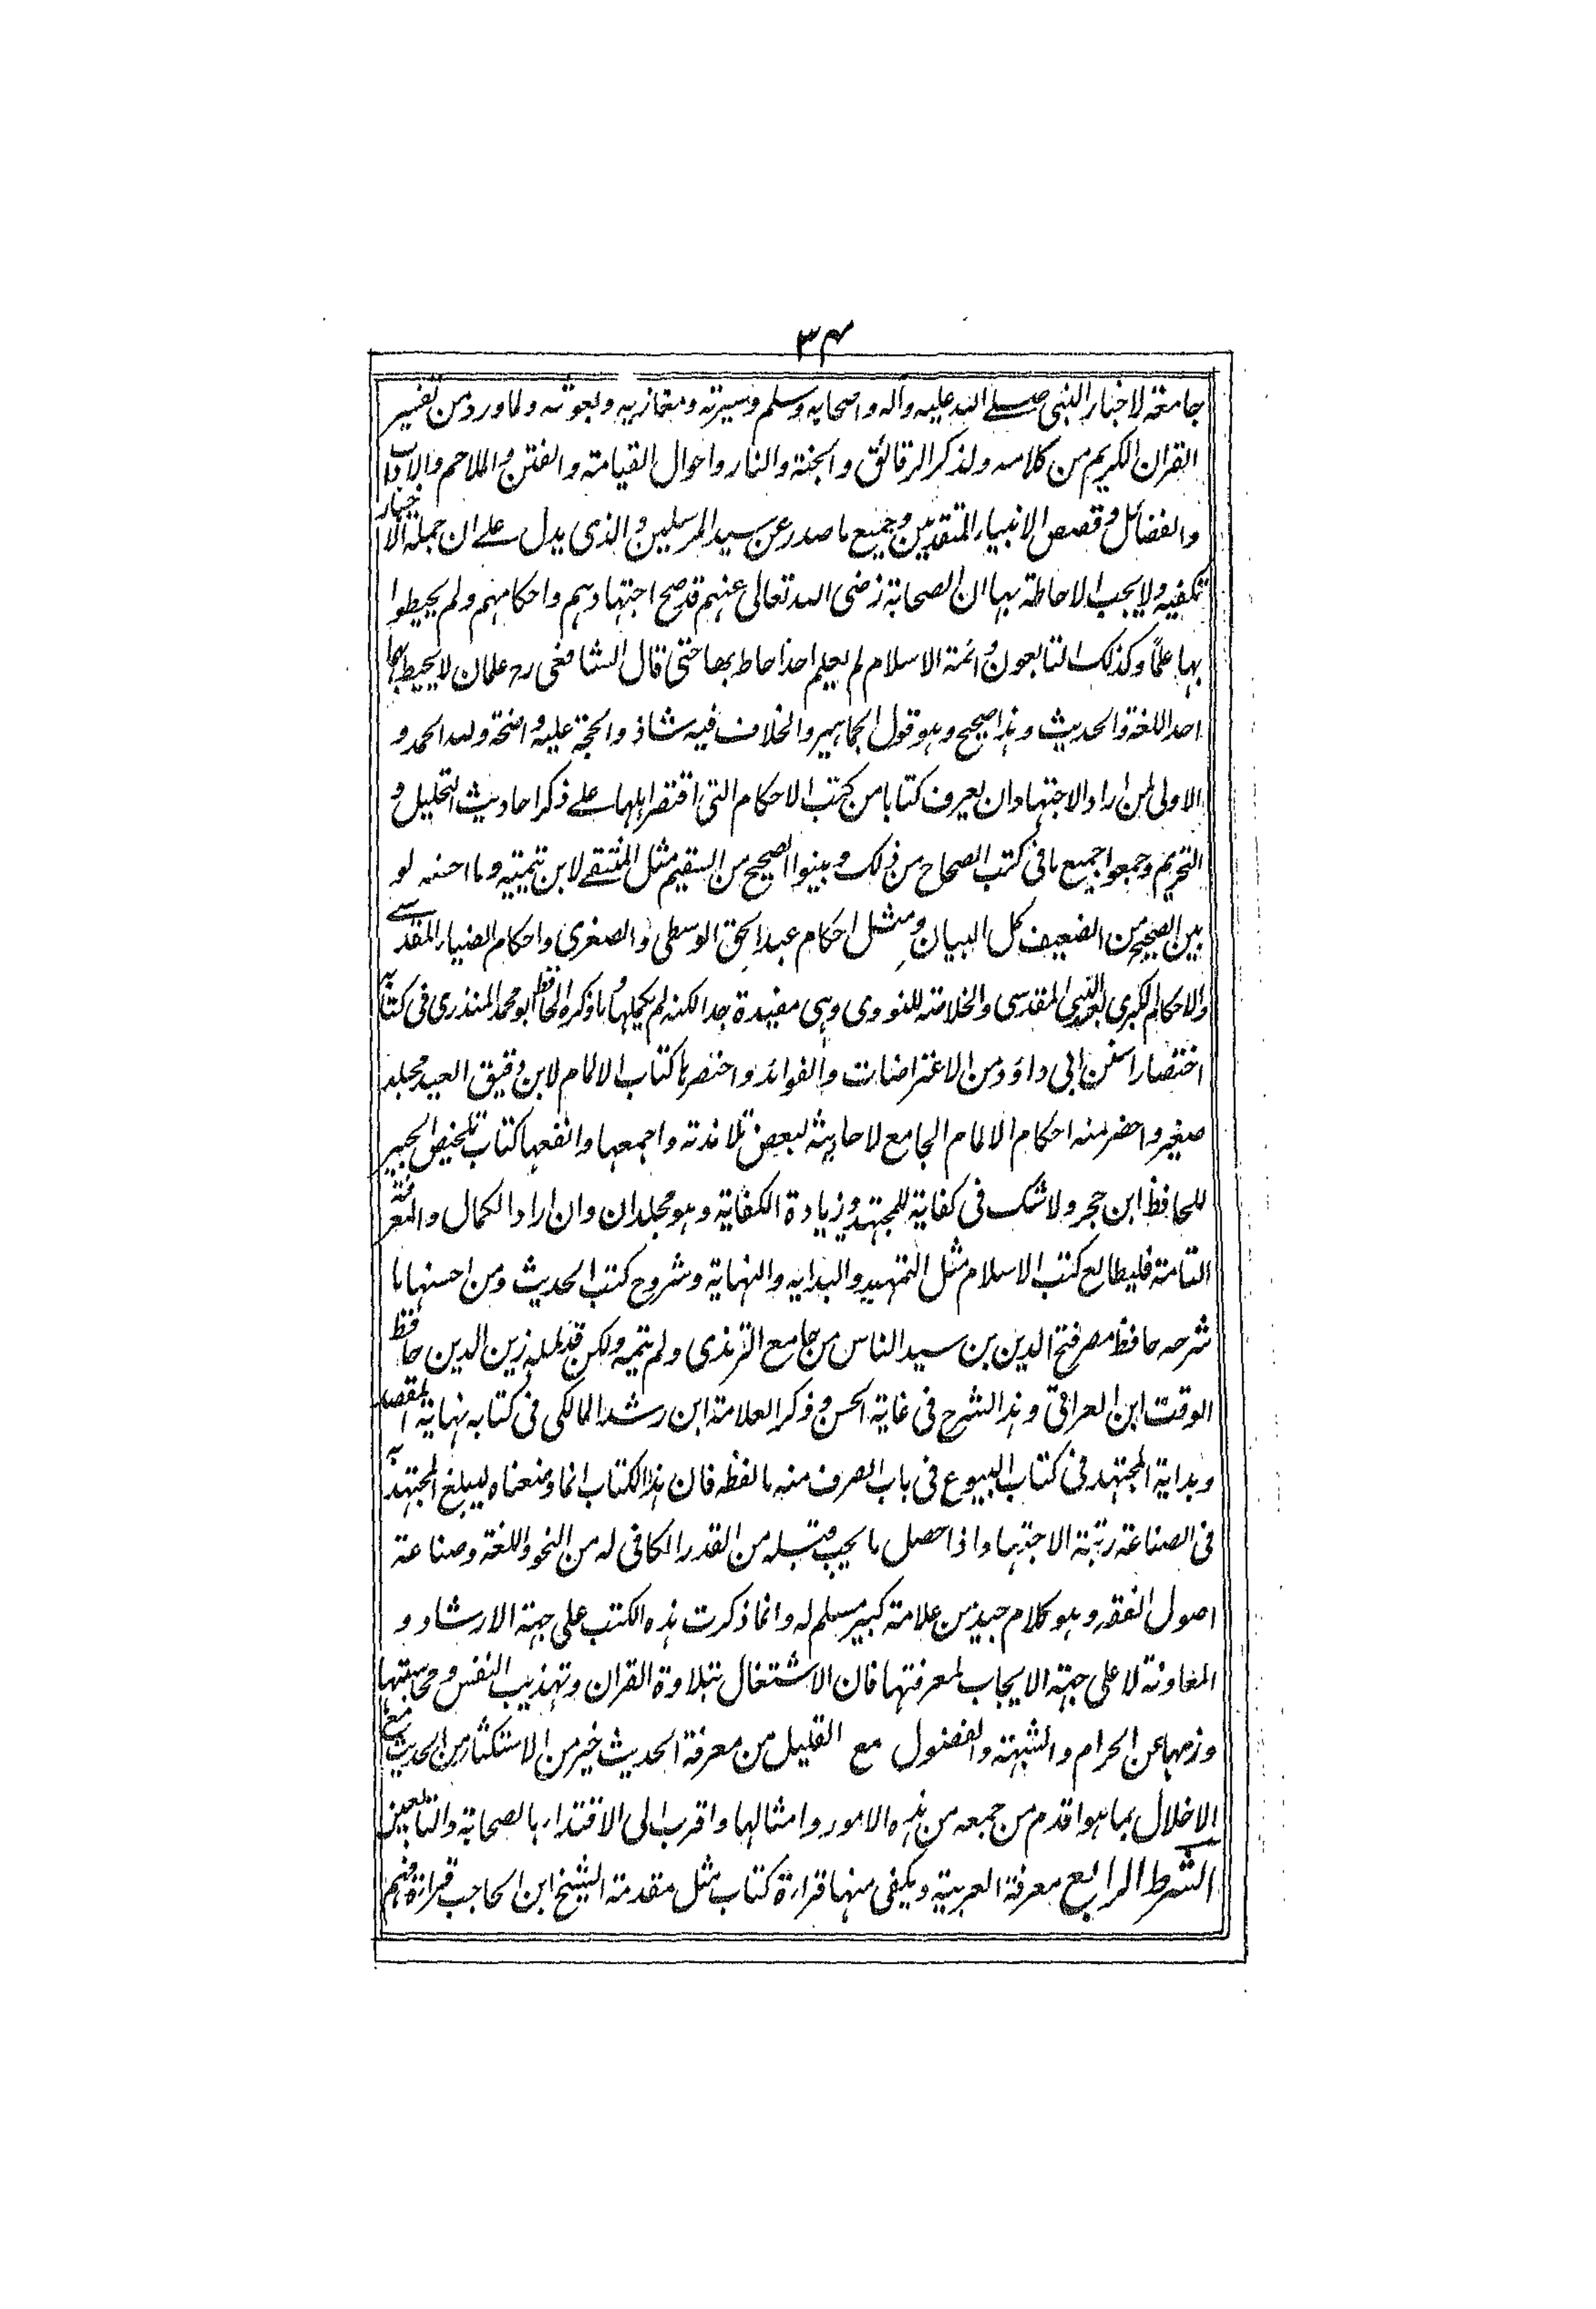 ٣٤
جامعة لاخبار النبى صلے الله عليه وآله واصحابه وسلم وسيرته ومغازيه وبعوثه ولما ورد من تفسير
القران الكريم من كلامه ولذكر الرقائق والجنة والنار واحوال القيامة والفتن والملاحم والاداب
والفضائل وقصص الانبياء المتقدمين وجميع ما صدر عن سيد المرسلين والذى يدل علے ان جملة الاخبار
تكفيه ولا يجب الاحاطة بها ان الصحابة رضى الله تعالى عنهم قد صح اجتهادهم واحكامهم ولم يحيطوا
بها علمًا وكذلك التابعون وائمة الاسلام لم يعلم احد احاط بها حتى قال الشافعى رح علمان لا يحيط بهما
احد اللغة والحديث وهذا صحيح وهو قول الجماهير والخلاف فيه شاذ والحجة عليه واضحة ولله الحمد و
الاولى لمن اراد الاجتهاد ان يعرف كتابا من كتب الاحكام التى اقتصر اهلها علے ذكر احاديث التحليل و
التحريم وجمعوا جميع ما فى كتب الصحاح من ذلك وبينوا الصحيح من السقيم مثل المنتقے لابن تيمية وما احسنه لو
بين الصحيح من الضعيف كل البيان ومثل احكام عبد الحق الوسطى والصغرى واحكام الضياء المقدسے
والاحكام الكبرى لعبد الغنى المقدسى والخلاصة للنووى وهى مفيدة جدا لكنه لم يكملها وما ذكره الحافظ ابو محمد المنذرى فى كتابه
اختصار السنن ابى داؤد من الاعتراضات والفوائد واخصرها كتاب الالمام لابن دقيق العيد مجلد
صغير واخصر منه احكام الالمام الجامع لاحاديثه لبعض تلامذته واجمعها وانفعها كتاب تلخيص الحبير
للحافظ ابن حجر ولا شك فى كفاية للمجتهد وزيادة الكفاية وهو مجلدان وان اراد الكمال والمعرفة
التامة فليطالع كتب الاسلام مثل التمهيد والبدايه والنهاية وشروح كتب الحديث ومن احسنها ما
شرحه حافظ مصر فتح الدين بن سيد الناس من جامع الترمذى ولم يتمه ولكن قد كمله زين الدين حافظ
الوقت ابن العراقى وهذا الشرح فى غاية الحسن وذكر العلامة ابن رشد المالكى فى كتابه نهاية المقصد
وبداية المجتهد فى كتاب البيوع فى باب الصرف منه ما لفظه فان هذا الكتاب انما وضعناه ليبلغ المجتهد به
فى الصناعة رتبة الاجتهاد اذا حصل ما يجب قبله من القدر الكافى له من النحو واللغة وصناعة
اصول الفقه وهو كلام جيد من علامة كبير مسلم له وانما ذكرت هذه الكتب على جهة الارشاد و
المعاونة لا على جهة الايجاب لمعرفتها فان الاشتغال بتلاوة القران وتهذيب النفس ومحاسبتها
وزمها عن الحرام والشبهة والفضول مع القليل من معرفة الحديث خير من الاستكثار من الحديث مع
الاخلال بما هو اقدم من جمعه من هذه الامور وامثالها واقرب الى الاقتداء بالصحابة والتابعين
الشرط الرابع معرفة العربية ويكفى منها قراءة كتاب مثل مقدمة الشيخ ابن الحاجب قراءة فهم